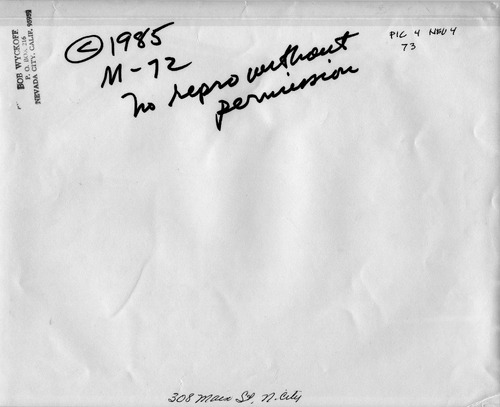 BOB WYCKOFF
P. O. BOX 216
NEVADA CITY, CALIF. 95959
© 1985
M-72
No repro without
permission
PIC 4 NEV 4
73
308 Main St, N. City